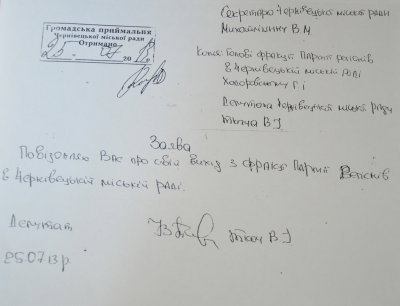 Громадська приймальня
Чернівецької міської ради
Отримано
25 07 2013
Секретарю Чернівецької міської ради
Михайлішину В.М
Копія: Голові фракції Партії регіонів
в Чернівецькій міській раді
Ходоровському Г.І
Депутата Чернівецької міської ради
Ткача В.І
Заява
Повідомляю Вас про свій вихід з фракції Партії Регіонів
в Чернівецькій міській раді.
Депутат
Ткач В.І
25.07.13 р